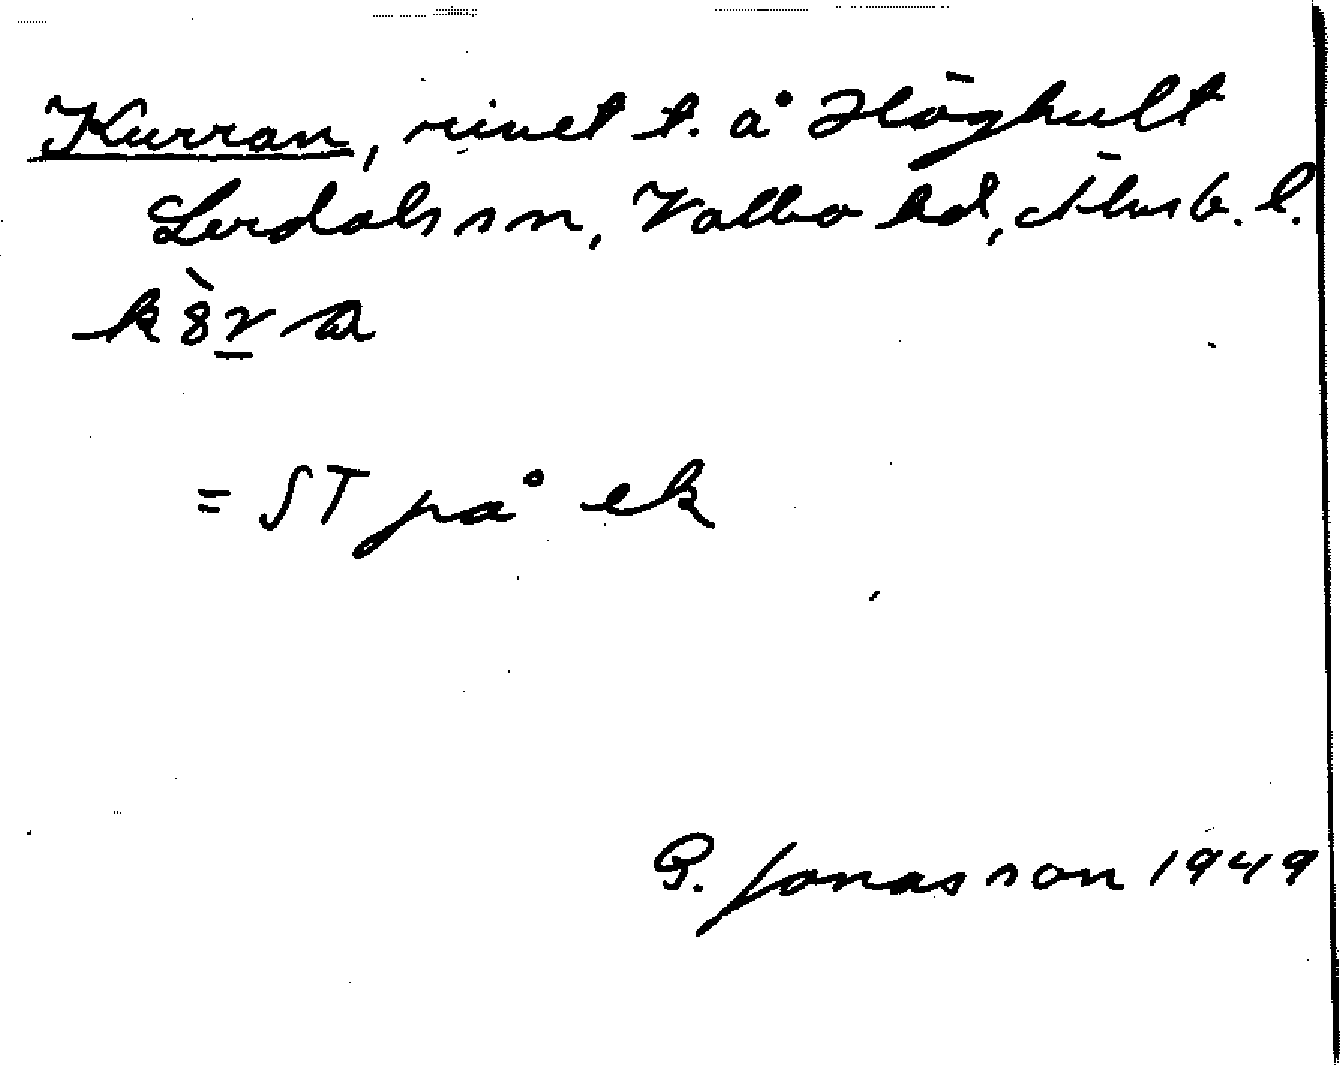 Kurran, rivet t. å Höghult
Lerdals sn, Valbo hd, Älvsb. l.
= ST på ek
G. Jonasson 1949